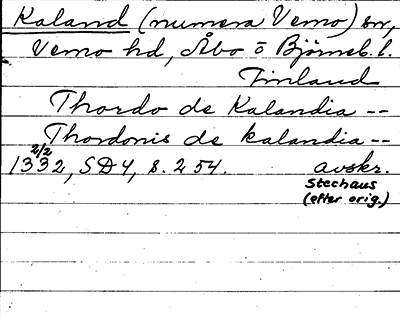 Kaland (numera Vemo) sn,
Vemo hd, Åbo o Björneb. l.
Finland
Thordo de Kalandia --
Thordonis de kalandia --
2/2
1332, SD4, s. 254. avskr.
Stechaus
(efter orig.)